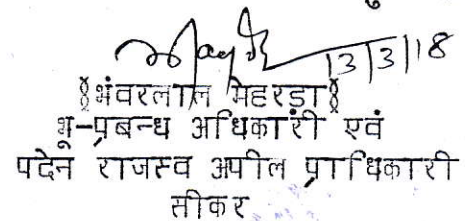 13/3/18
(भंवरलाल मेहरडा)
भू-प्रबन्ध अधिकारी एवं
पदेन राजस्व अपील प्राधिकारी
सीकर